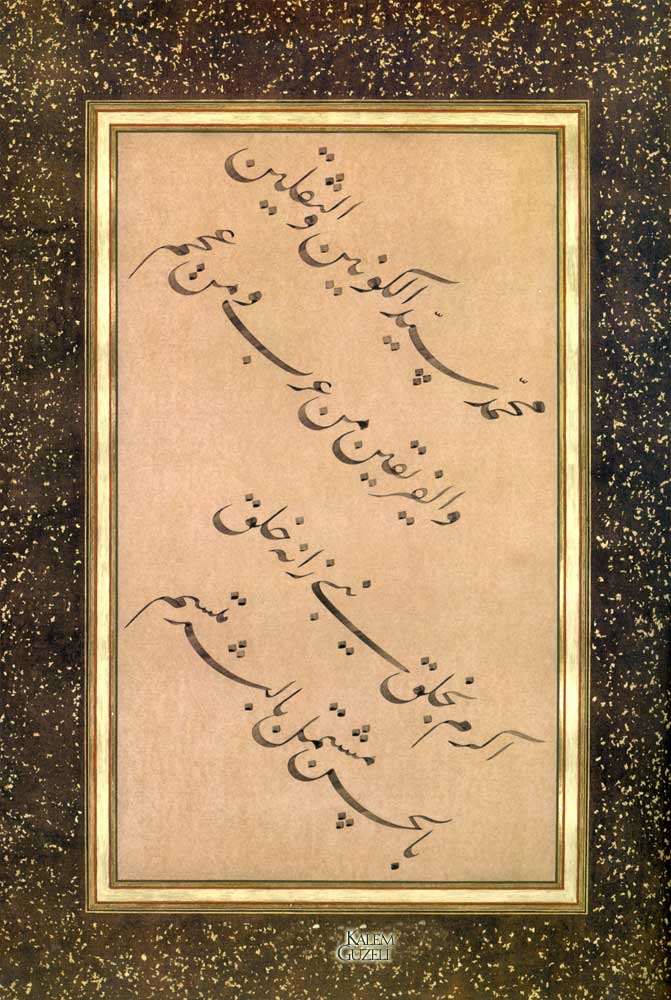 محمّد سيّد الكونين والثقلين
والفريقين من عرب ومن عجم
اكرم بخلق نبي زانه خلق
بالحسن مشتمل بالبشر متسم
KALEM
GÜZELİ